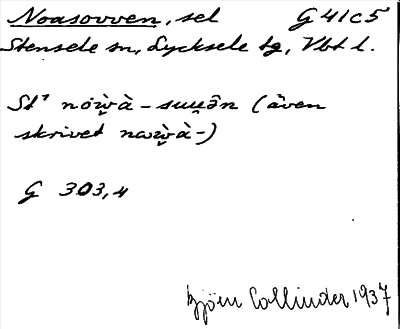 Noasovven, sel G 41c5
Stensele sn, Lycksele tg, Vbt l.
St¹ nóẁ̬à-suu̯ôn (även
skrivet naẁ̬à-)
G 303,4
Björn Collinder 1937